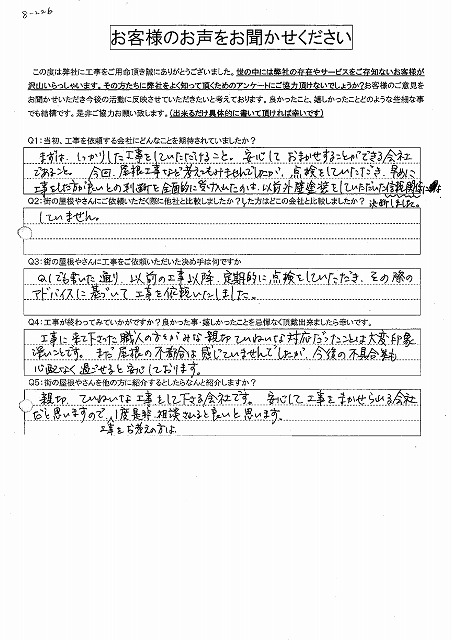 8-226
お客様のお声をお聞かせください
この度は弊社に工事をご用命頂き誠にありがとうございました。世の中には弊社の存在やサービスをご存知ないお客様が
沢山いらっしゃいます。その方たちに弊社をよく知って頂くためのアンケートにご協力頂けないでしょうか?お客様のご意見を
お聞かせいただき今後の活動に反映させていただきたいと考えております。良かったこと、嬉しかったことどのような些細な事
でも結構です。是非ご協力お願い致します。(出来るだけ具体的に書いて頂ければ幸いです)
Q1:当初、工事を依頼する会社にどんなことを期待されていましたか?
まずは、しっかりした工事をしていただけること。安心しておまかせすることができる会社
であること。今回、屋根工事など考えてもみませんでしたが、点検をしていただき、早めに
工事をした方が良いとの判断を全面的に受け入れたのは、以前外壁塗装をしていただいた信頼関係に
決断しました。
Q2:街の屋根やさんにご依頼いただく際に他社と比較しましたか?した方はどこの会社と比較しましたか?
していません。
Q3:街の屋根やさんに工事をご依頼いただいた決め手は何ですか
Q1でも書いた通り、以前の工事以降、定期的に点検をしていただき、その際の
アドバイスに基づいて工事を依頼いたしました。
Q4:工事が終わってみていかがですか?良かった事・嬉しかったことを忌憚なく頂戴出来ましたら幸いです。
工事に来て下さった職人の方々がみな親切ていねいな対応だったことは大変印象
深いことです。まだ屋根の不都合は感じていませんでしたが、今後の不具合も
心配なく過ごせると安心しております。
Q5:街の屋根やさんを他の方に紹介するとしたらなんと紹介しますか?
親切、ていねいな工事をして下さる会社です。安心して工事をまかせられる会社
だと思いますので、1度是非相談されると良いと思います。
工事をお考えの方は